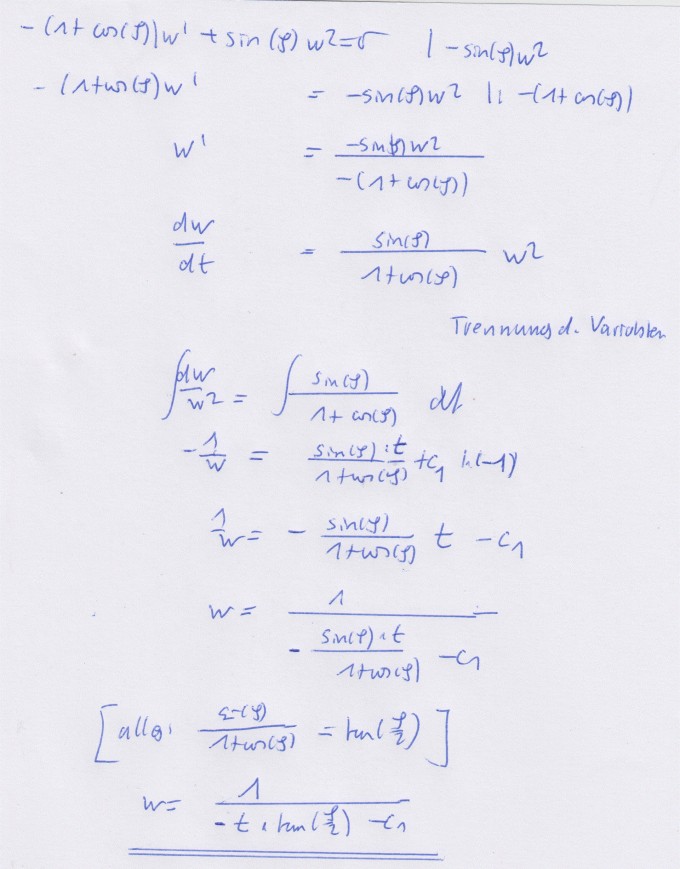 -(1+cos(φ))w' + sin(φ) w² = 0 | -sin(φ)w²
-(1+cos(φ))w' = -sin(φ)w² |: -(1+cos(φ))
w' = -sin(φ)w² / -(1+cos(φ))
dw/dt = sin(φ) / 1+cos(φ) w²
Trennung d. Variablen
∫ dw/w² = ∫ sin(φ) / 1+cos(φ) dt
-1/w = sin(φ)·t / 1+cos(φ) + c₁ |·(-1)
1/w = - sin(φ) / 1+cos(φ) t - c₁
w = 1 / - sin(φ)·t / 1+cos(φ) - c₁
[allg. sin(φ) / 1+cos(φ) = tan(φ/2)]
w = 1 / -t·tan(φ/2) - c₁